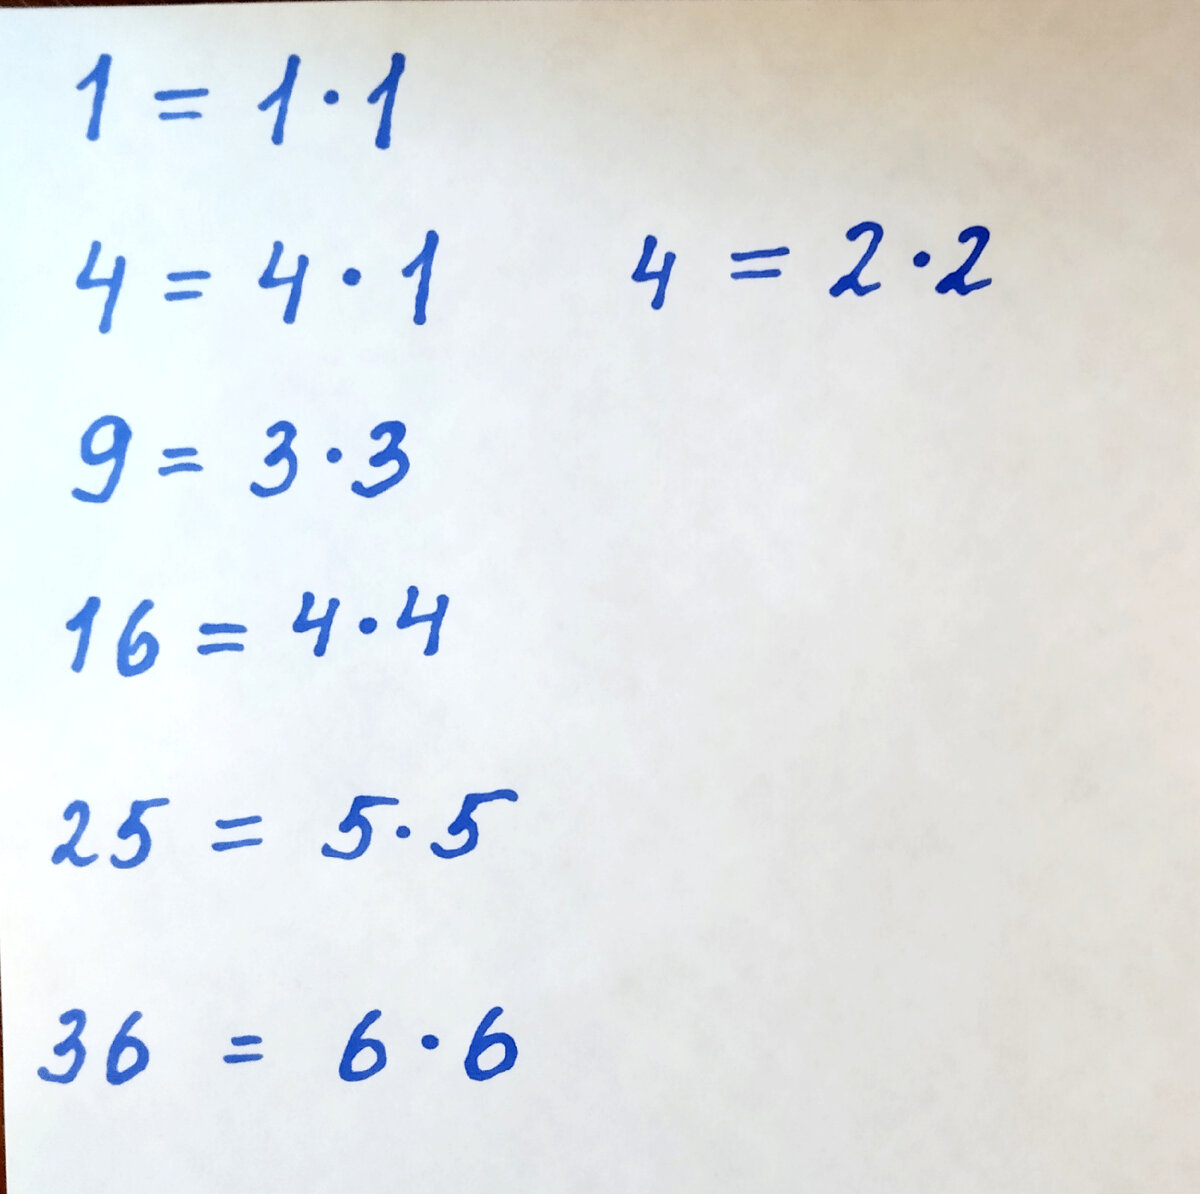 1 = 1·1
4 = 4·1 4 = 2·2
9 = 3·3
16 = 4·4
25 = 5·5
36 = 6·6